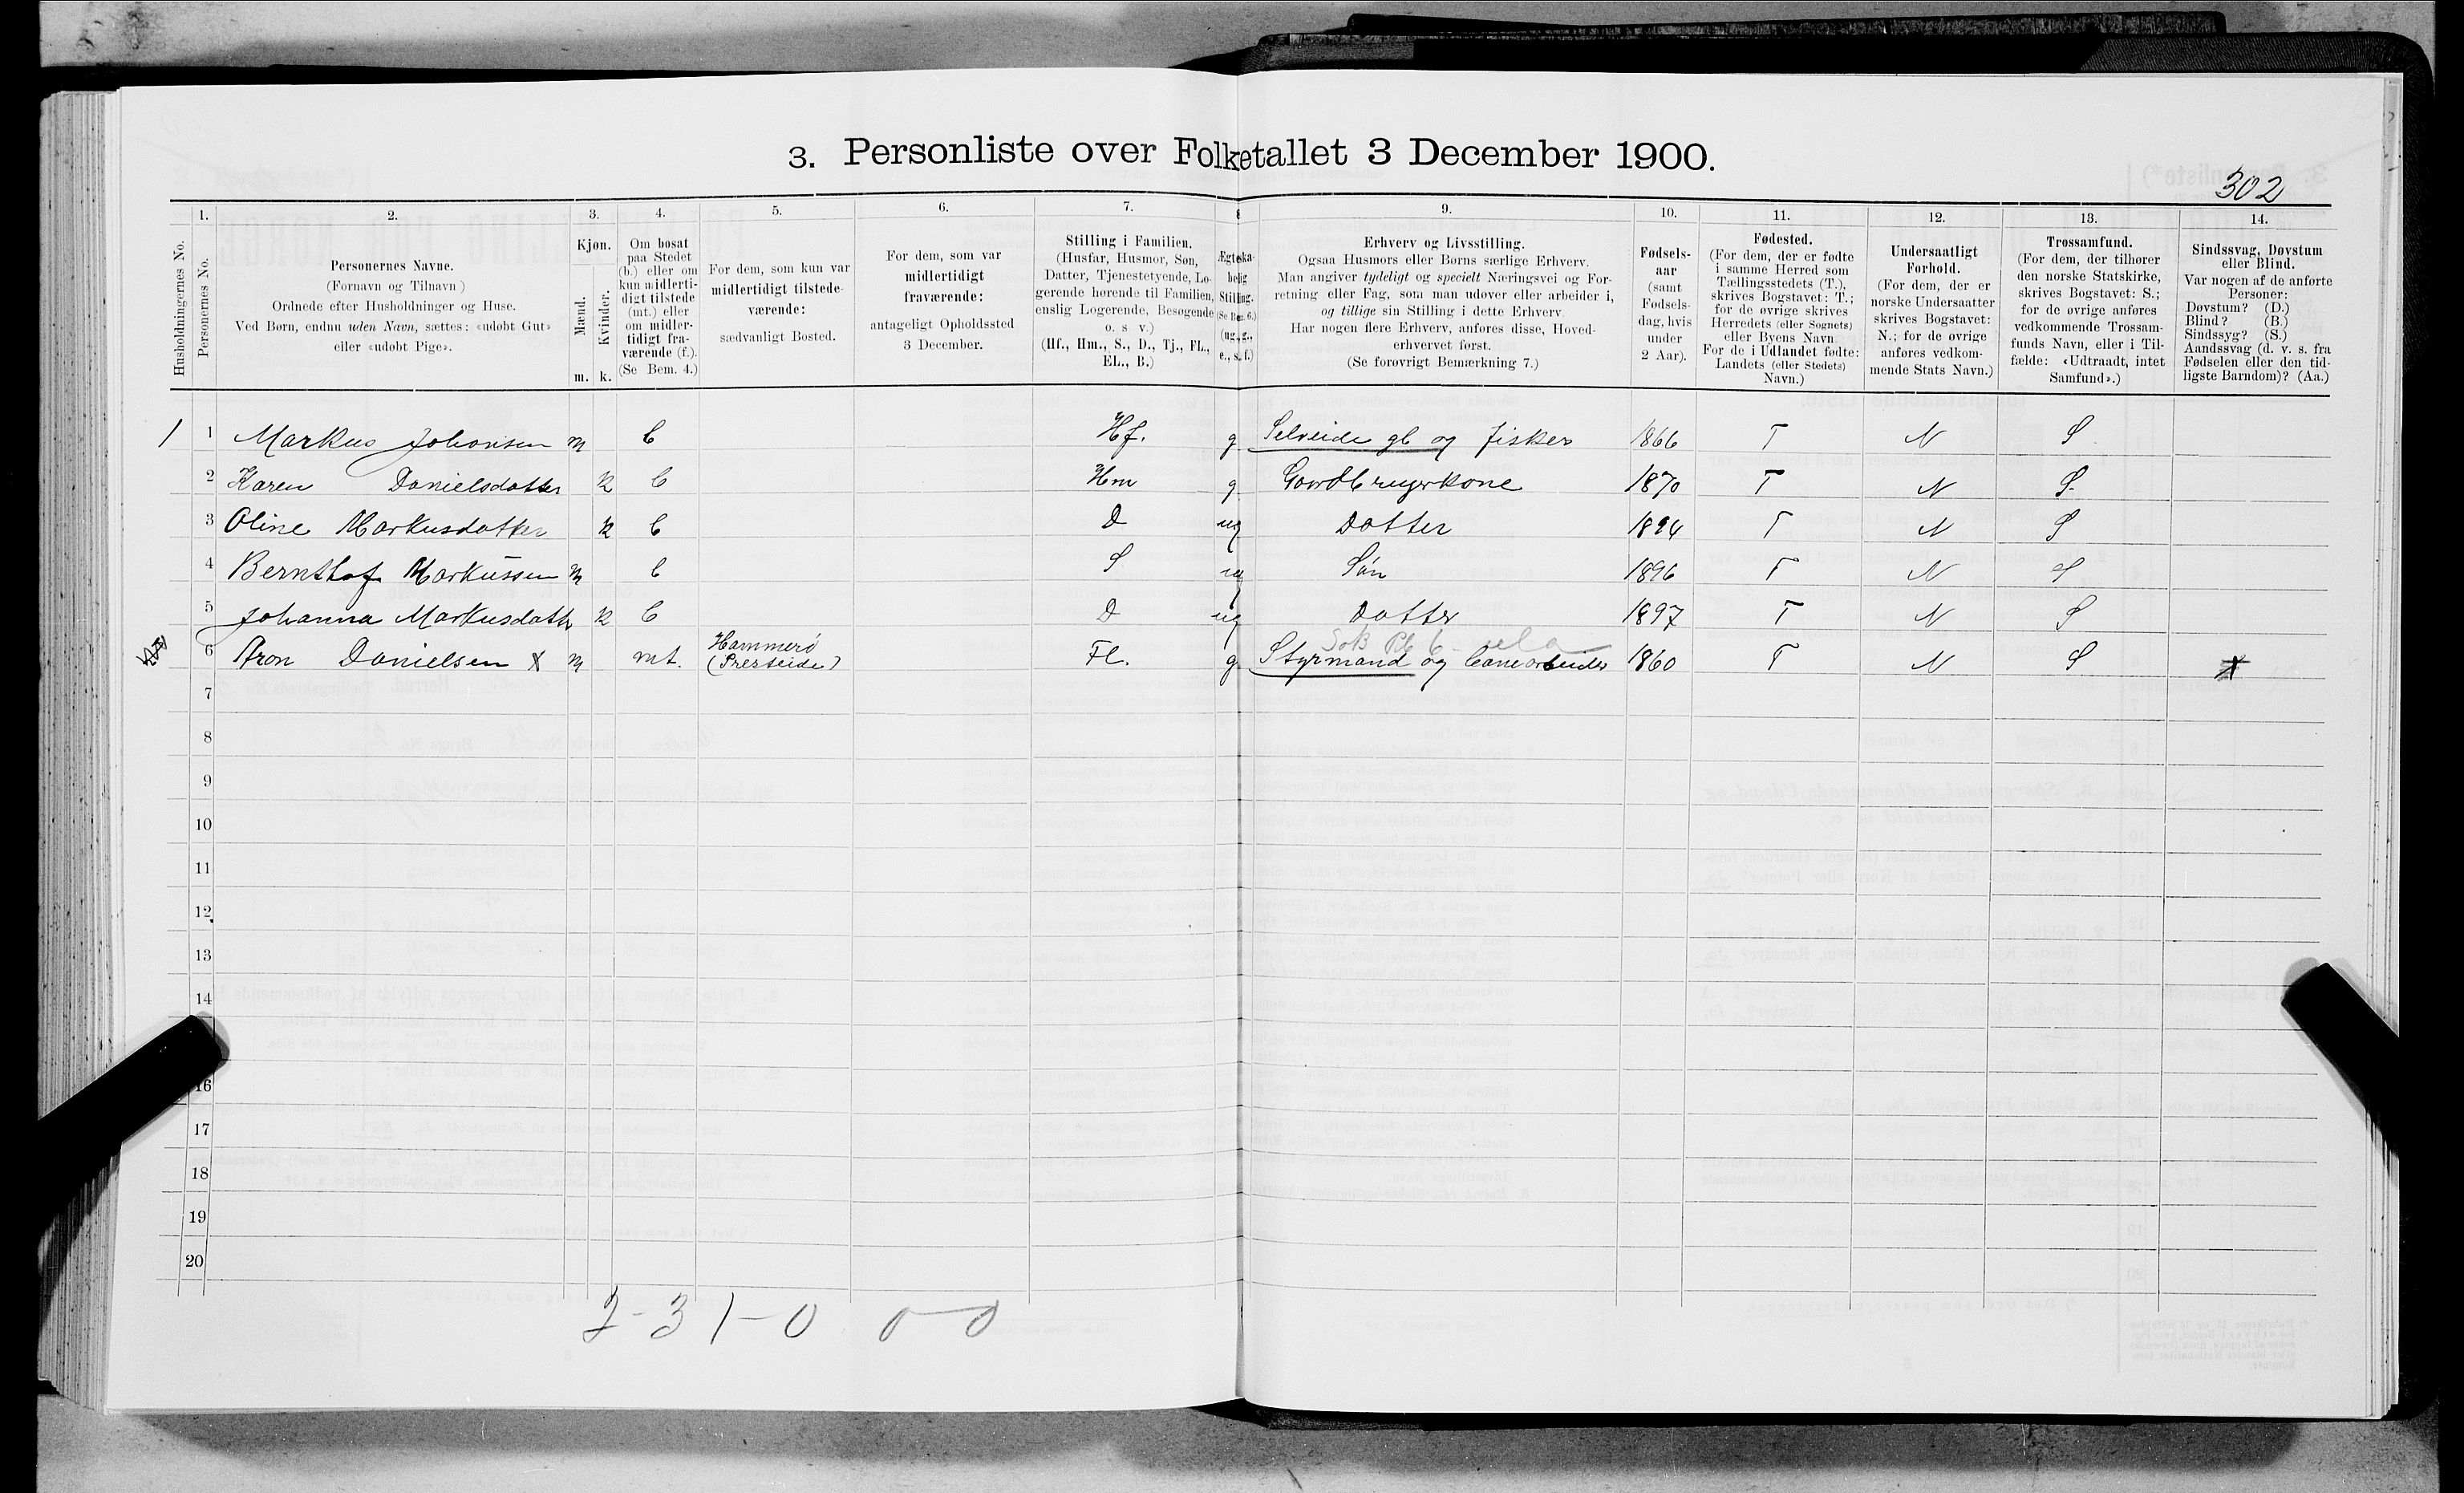 3. Personliste over Folketallet 3 December 1900.
302
1. 2. 3. 4. 5. 6. 7. 8 9. 10. 11. 12. 13. 14.
Husholdningernes No.
Personernes No.
Personernes Navne.
(Fornavn og Tilnavn)
Ordnede efter Husholdninger og Huse.
Ved Børn, endnu uden Navn, sættes: «udøbt Gut»
eller «udøbt Pige».
Kjøn.
Mænd.
Kvinder.
m. k.
Om bosat
paa Stedet
(b.) eller om
kun midlerti-
digt tilstede
(mt.) eller
om midler-
tidigt fra-
værende (f.).
(Se Bem. 4.)
For dem, som kun var
midlertidigt tilstede-
værende:
sædvanligt Bosted.
For dem, som var
midlertidigt
fraværende:
antageligt Opholdssted
3 December.
Stilling i Familien.
(Husfar, Husmor, Søn,
Datter, Tjenestetyende, Lo-
gerende hørende til Familien,
enslig Logerende, Besøgende
o. s v.)
(Hf., Hm., S., D., Tj., FL.,
EL., B.)
Ægteska-
belig
Stilling.
(Se Bem. 6.)
(ug., g.,
e., s., f.)
Erhverv og Livsstilling.
Ogsaa Husmors eller Børns særlige Erhverv.
Man angiver tydeligt og specielt Næringsvei og For-
retning eller Fag, som man udøver eller arbeider i,
og tillige sin Stilling i dette Erhverv.
Har nogen flere Erhverv, anføres disse, Hoved-
erhvervet først.
(Se forøvrigt Bemærkning 7.)
Fødsels-
aar
(samt
Fødsels-
dag, hvis
under
2 Aar).
Fødested.
(For dem, der er fødte
i samme Herred som
Tællingsstedets (T.),
skrives Bogstavet: T.;
for de øvrige skrives
Herredets (eller Sognets)
eller Byens Navn.
For de i Udlandet fødte:
Landets (eller Stedets)
Navn.)
Undersaatligt
Forhold.
(For dem, der er
norske Undersaatter
skrives Bogstavet:
N.; for de øvrige
anføres vedkom-
mende Stats Navn.)
Trossamfund.
(For dem, der tilhører
den norske Statskirke,
skrives Bogstavet: S.;
for de øvrige anføres
vedkommende Trossam-
funds Navn, eller i Til-
fælde: «Udtraadt, intet
Samfund».)
Sindssvag, Døvstum
eller Blind.
Var nogen af de anførte
Personer:
Døvstum? (D.)
Blind? (B.)
Sindssyg? (S.)
Aandssvag (d. v. s. fra
Fødselen eller den tid-
ligste Barndom)? (Aa.)
1 1 Markus Johansen m b Hf. g Selveide gb og fisker 1866 T N S
2 Karen Danielsdatter k b Hm g. Gaardbrugerkone 1870 T N S.
3 Oline Markusdatter k b D ug Datter 1894 T N S
4 Bernthof Markussen m b S ug Søn 1896 T N S
5 Johanna Markusdatt k b D ug Datter 1897 T N S
6 Aron Danielsen x m mt. Hammerø (Presteide) Fl. g. Styrmand og 1860 T N S x
7
8
9
10
11
12
13
14
16
17
18
19
20
2-3 1-0 0-0